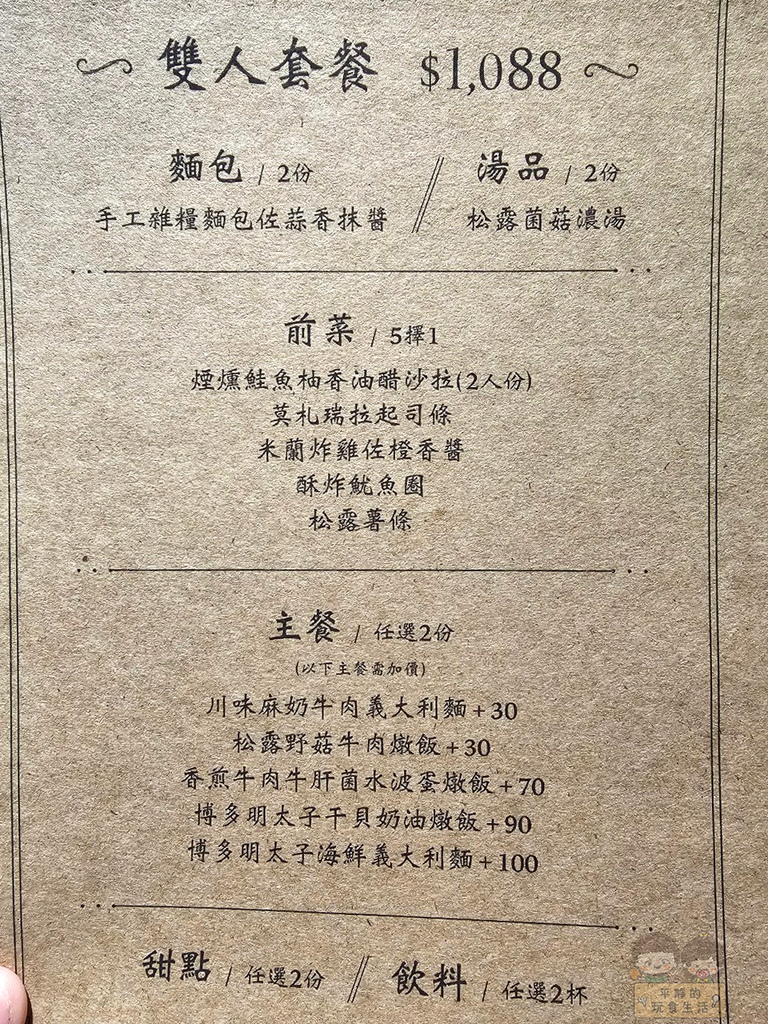 雙人套餐 $1,088
麵包 / 2份
手工雜糧麵包佐蒜香抹醬
湯品 / 2份
松露菌菇濃湯
前菜 / 5擇1
煙燻鮭魚柚香油醋沙拉(2人份)
莫札瑞拉起司條
米蘭炸雞佐橙香醬
酥炸魷魚圈
松露薯條
主餐 / 任選2份
(以下主餐需加價)
川味麻奶牛肉義大利麵+30
松露野菇牛肉燉飯+30
香煎牛肉牛肝菌水波蛋燉飯+70
博多明太子干貝奶油燉飯+90
博多明太子海鮮義大利麵+100
甜點 / 任選2份
飲料 / 任選2杯
玩食生活